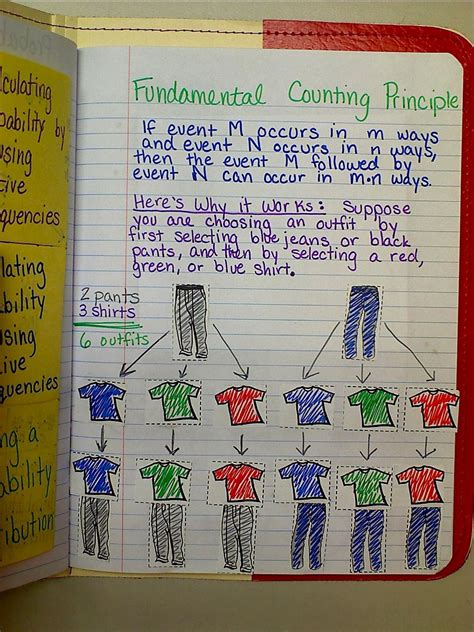 Fundamental Counting Principle
If event M occurs in m ways
and event N occurs in n ways,
then the event M followed by
event N can occur in m·n ways.
Here's Why it Works: Suppose
you are choosing an outfit by
first selecting blue jeans or black
pants, and then by selecting a red,
green, or blue shirt.
2 pants
3 shirts
6 outfits
by
using
using
a